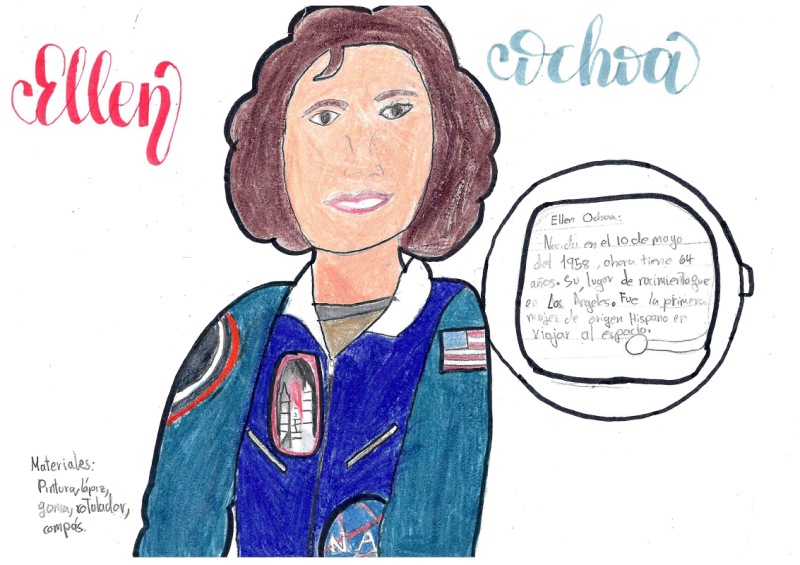 Ellen
Ochoa
Ellen Ochoa:
Nacida en el 10 de mayo
del 1958, ahora tiene 64
años. Su lugar de nacimiento fue
en Los Ángeles. Fue la primera
mujer de origen Hispano en
viajar al espacio.
Materiales:
Pintura, lápiz,
goma, rotulador,
compás.
NA